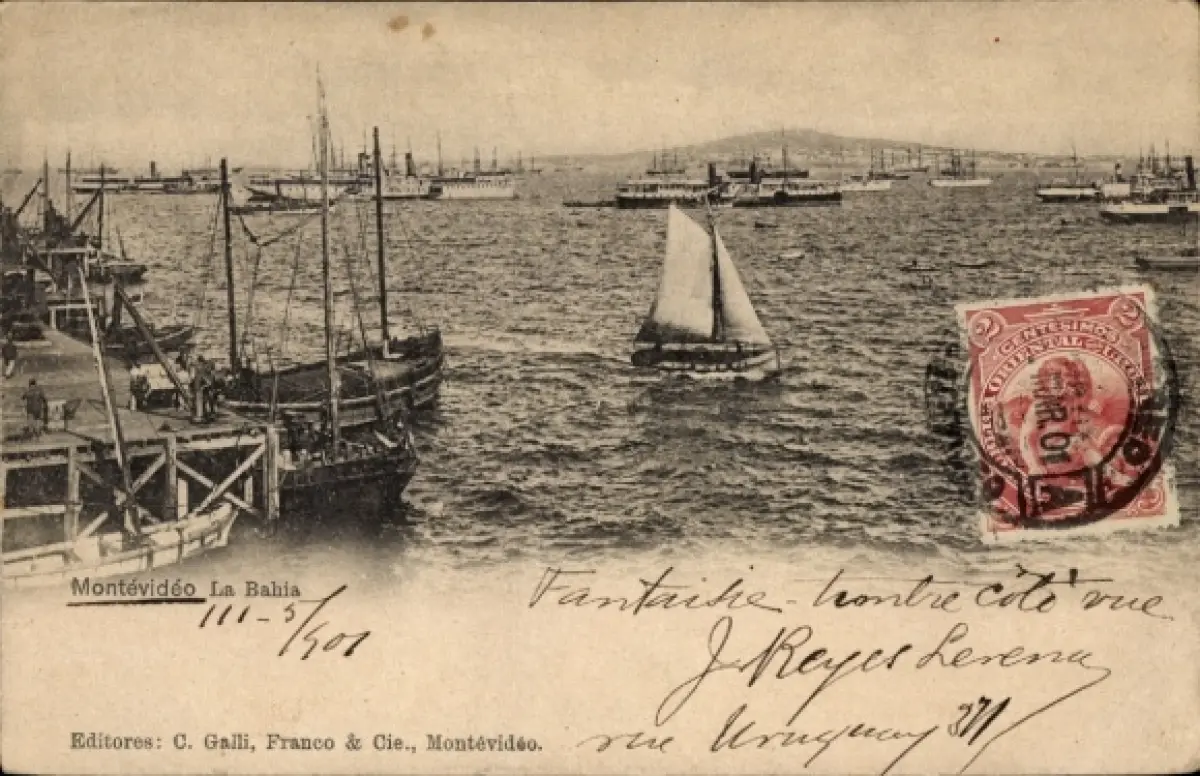 2 CENTESIMOS 2
ORIENTAL
MAR. 01
A
Montévidéo La Bahia
III - 5/901
Fantaisie - timbre côté vue
J. Reyes Lerena
rue Uruguay 371
Editores: C. Galli, Franco & Cie., Montévidéo.